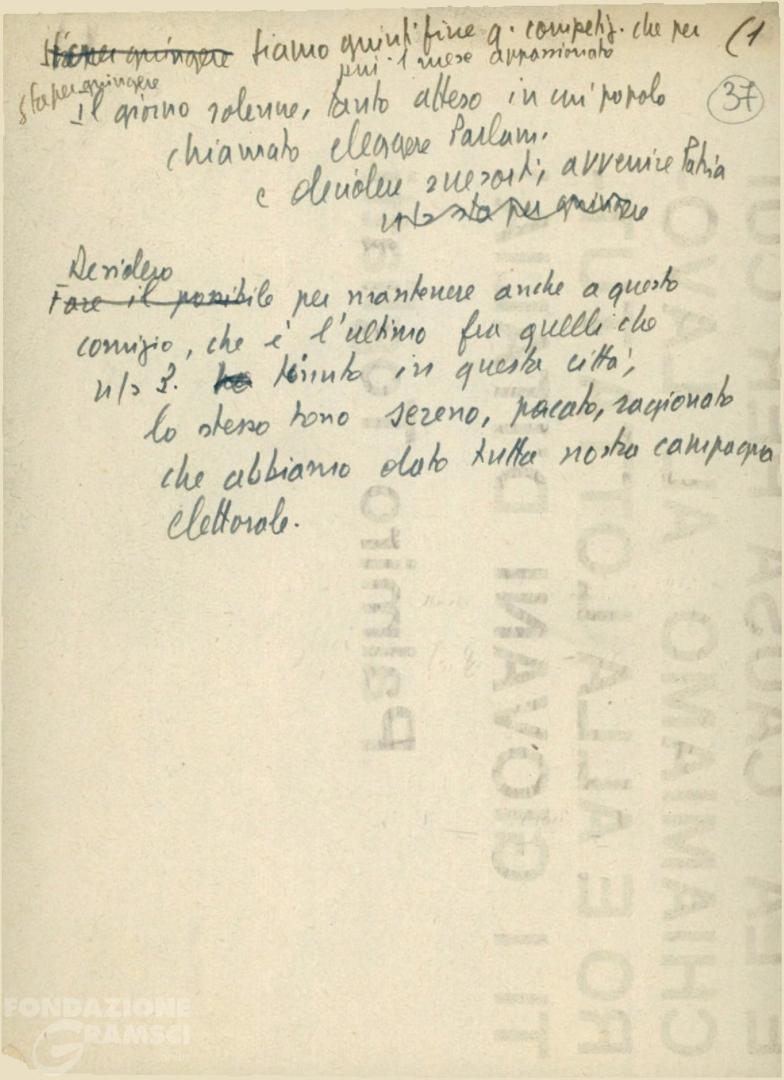 Sta per giungere Siamo giunti fine q. competiz. che per (1
più 1 mese appassionato
sta per giungere
37
Il giorno solenne, tanto atteso in cui popolo
chiamato eleggere Parlam.
e decidere sue sorti, avvenire Patria
sta per giungere
Desidero
Fare il possibile per mantenere anche a questo
comizio, che è l'ultimo fra quelli che
n/s P. ha tenuto in questa città,
lo stesso tono sereno, pacato, ragionato
che abbiamo dato tutta nostra campagna
elettorale.
Palmiro
TI I GIOVANI
RO E ALLA LOT
CHIAMIAMO
FONDAZIONE
GRAMSCI